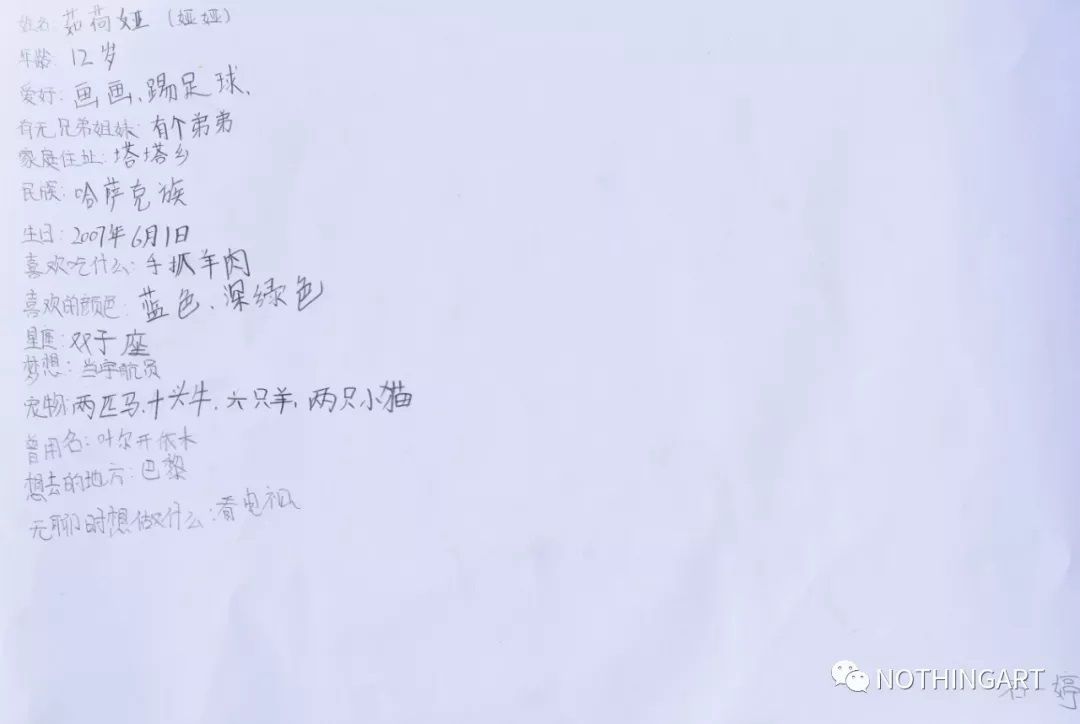 姓名: 茹荷娅（娅娅）
年龄: 12岁
爱好: 画画、踢足球、
有无兄弟姐妹: 有个弟弟
家庭住址: 塔塔乡
民族: 哈萨克族
生日: 2007年6月1日
喜欢吃什么: 手抓羊肉
喜欢的颜色: 蓝色、深绿色
星座: 双子座
梦想: 当宇航员
宠物: 两匹马、十头牛、六只羊、两只小猫
曾用名: 叶尔开依木
想去的地方: 巴黎
无聊时想做什么: 看电视
NOTHINGART
婷